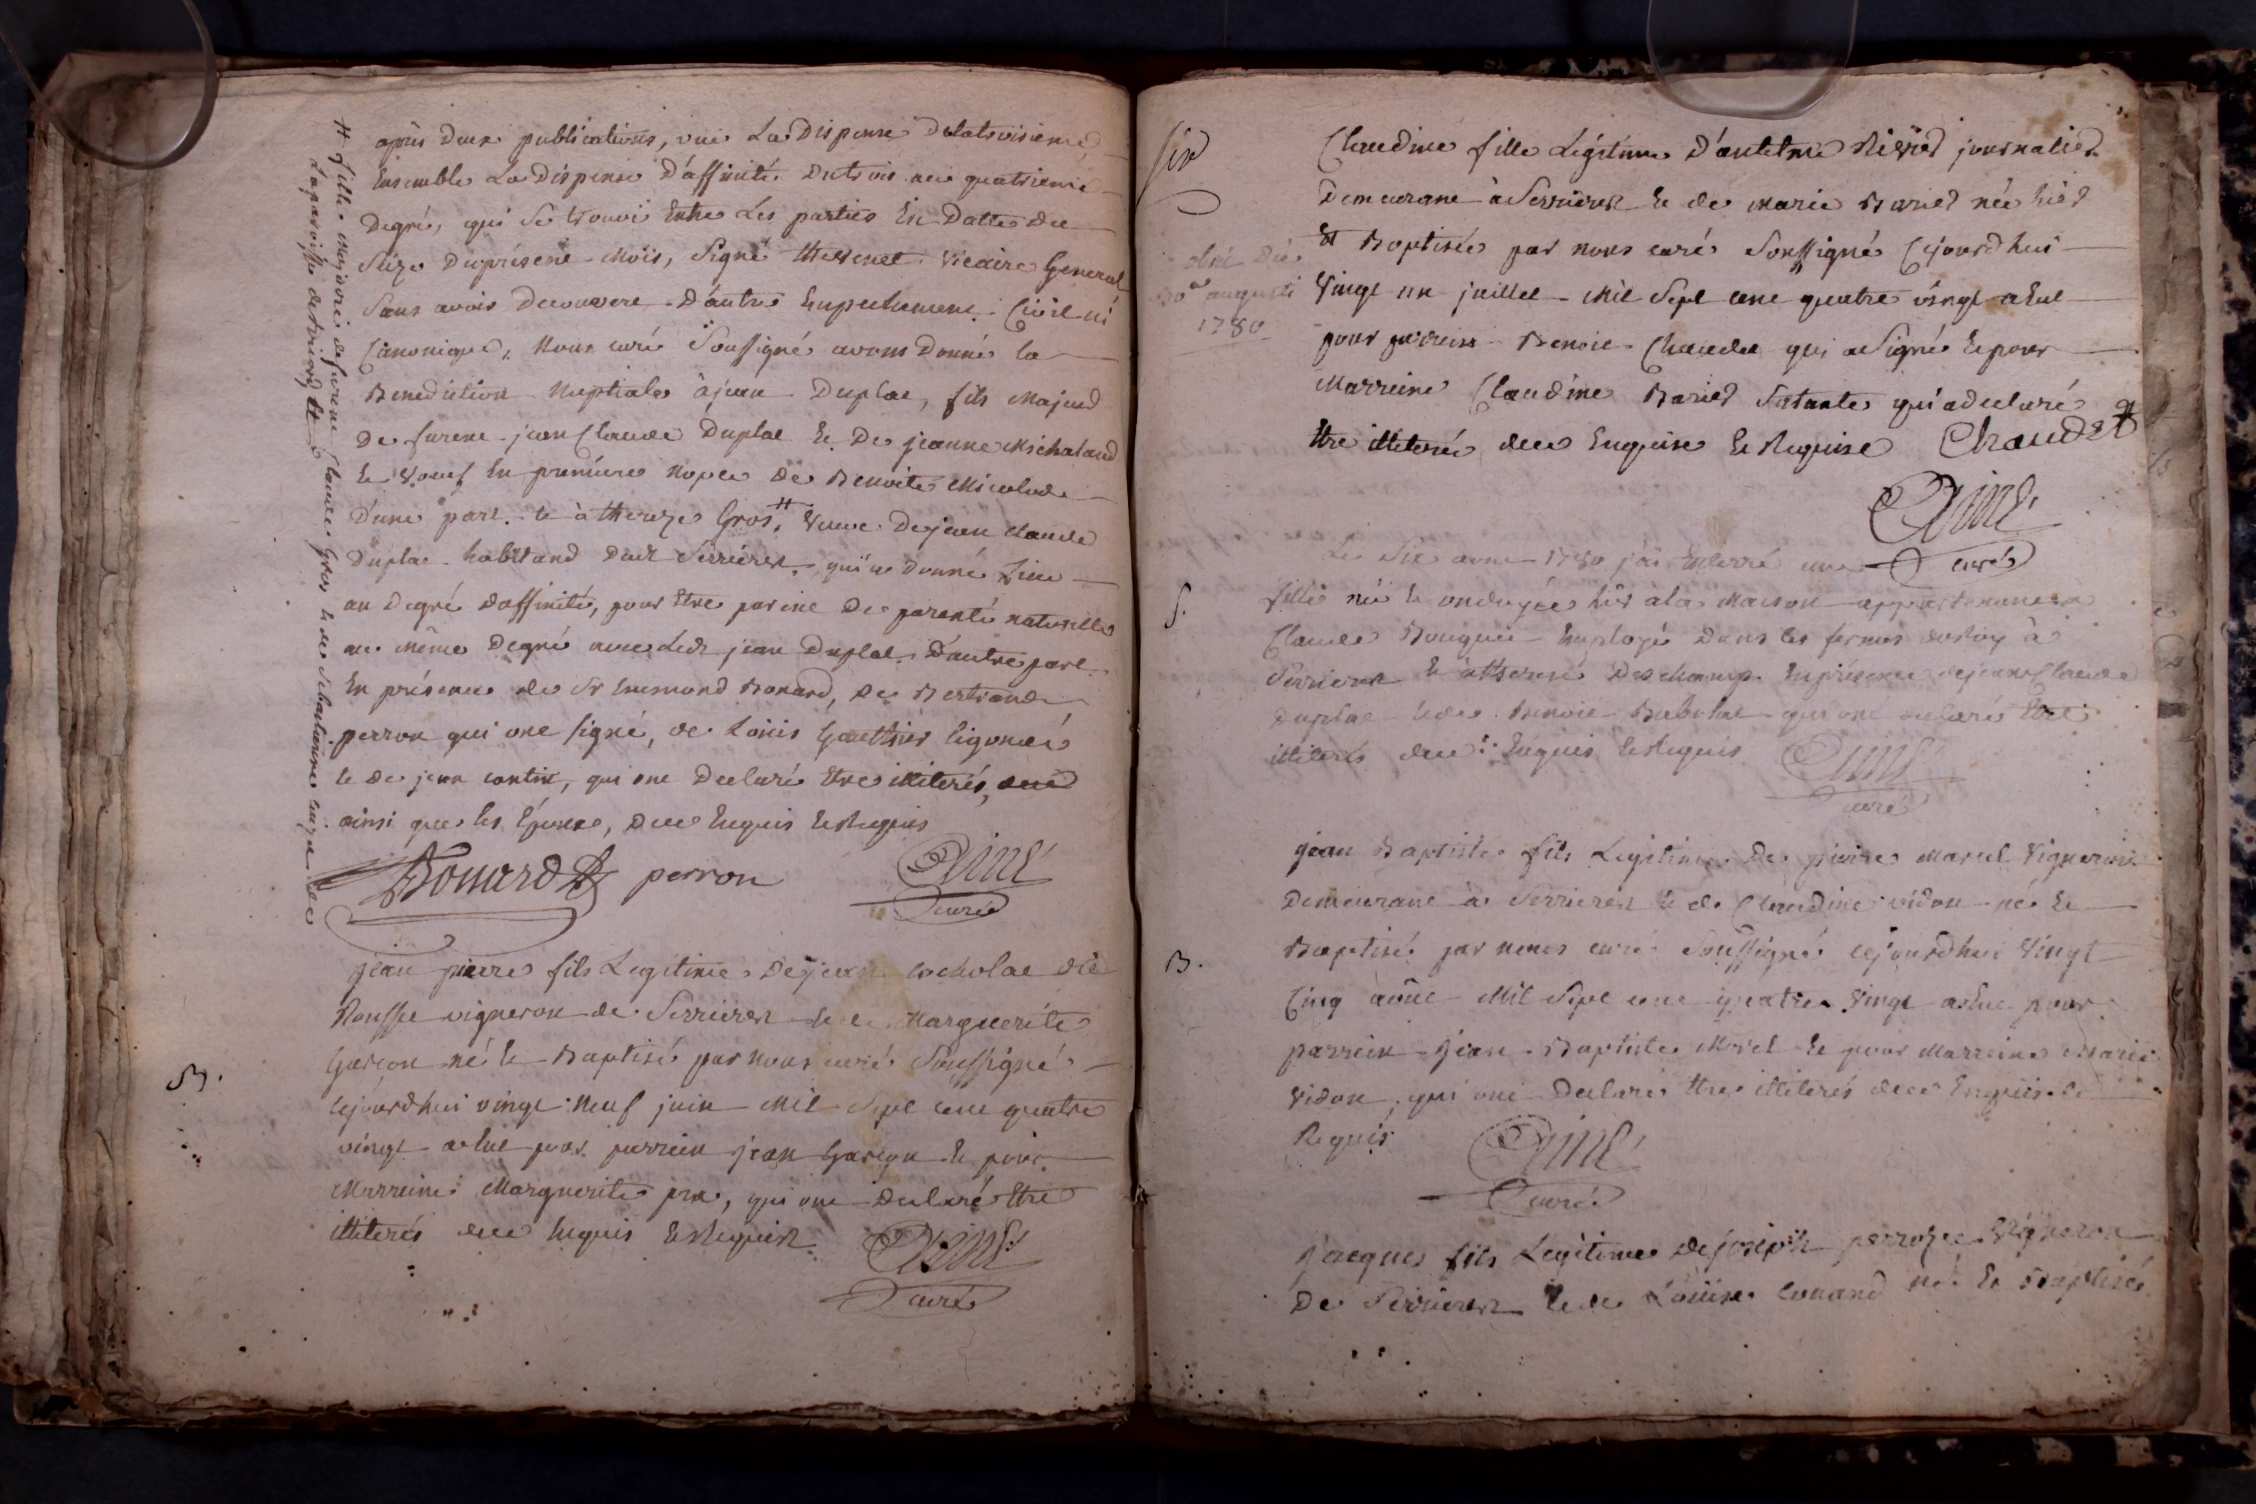 après deux publications, vue La Dispense de la troisieme
Ensemble La Dispense D'affinité Du trois au quatrieme
Degré, qui Se trouve Entre Les parties En Datte du
Seize Du présent Mois, Signé Vicaire General
Sans avoir Decouvert D'autre Empechement Civil ni
Canonique, Nous curé Soussigné avons Donné la
Benediction Nuptiale à jean Duplat, fils Majeur
De furent jean Claude Duplat Et De jeanne Michalaud
Et Veuf En premiere Nopce De Benoite
D'une part. et à thereze Gros, # Veuve De jean claude
Duplat habitand Dud Serrieres, qui a donné Lieu
au Degré d'affinité, pour Etre parent De parenté naturelle
au même Degré avec Led jean Duplat. D'autre part
En présence de Sr Enemond Bonard, De Bertrand
perron qui ont signé, de Louis Gauthier
et de jean contin, qui ont Declaré Etre illiterés,
ainsi que les Epoux, De ce Enquis Et Requis
Bonard perron Ainé
curé
# fille Majeure de furent Claude Gros et de Sebastienne de
La paroisse de #
B.
jean pierre fils Legitime De jean cocholat dit
Rousse vigneron de Serrieres et de Marguerite
Garçon né et Baptisé par nous curé Soussigné
cejourdhui vingt neuf juin Mil Sept cent quatre
vingt a Eut pour parrein jean Garçon Et pour
Marreine Marguerite pra, qui ont declaré Etre
illiterés de ce Enquis Et Requis
Ainé
curé
Claudine fille Legitime D'antelme journalier
Demeurant à Serrieres Et de Marie Barier née hier
Et Baptisée par nous curé Soussigné Cejourdhui
Vingt un juillet Mil Sept cent quatre vingt a Eut
pour parrein Benoit Chaudet qui a Signé Et pour
Marreine Claudine Barier Sa tante qui a declaré
Etre illiterée de ce Enquise Et Requise Chaudet
Ainé
curé
obiit Die
augusti
1780
S.
Le Six aout 1780 j'ai Enterré une
fille née et ondoyée hier à la Maison appartenant a
Claude Bouquin Employé Dans les fermes du Roy à
Serrieres Et à therese Deschamp En présence de jean Claude
Duplat et de Benoit qui ont declaré Etre
illiterés de ce Enquis Et Requis Ainé
curé
B.
jean Baptiste fils Legitime De pierre Marcel Vigneron
Demeurant à Serrieres Et de Claudine vidon né Et
Baptisé par nous curé Soussigné cejourdhui Vingt
Cinq aout Mil Sept cent quatre Vingt a Eut pour
parrein jean Baptiste Morel Et pour Marreine Marie
vidon, qui ont Declaré Etre illiterés de ce Enquis Et
Requis Ainé
curé
jacques fils Legitime de joseph Vigneron
De Serrieres Et de Louise Conand né Et Baptisé